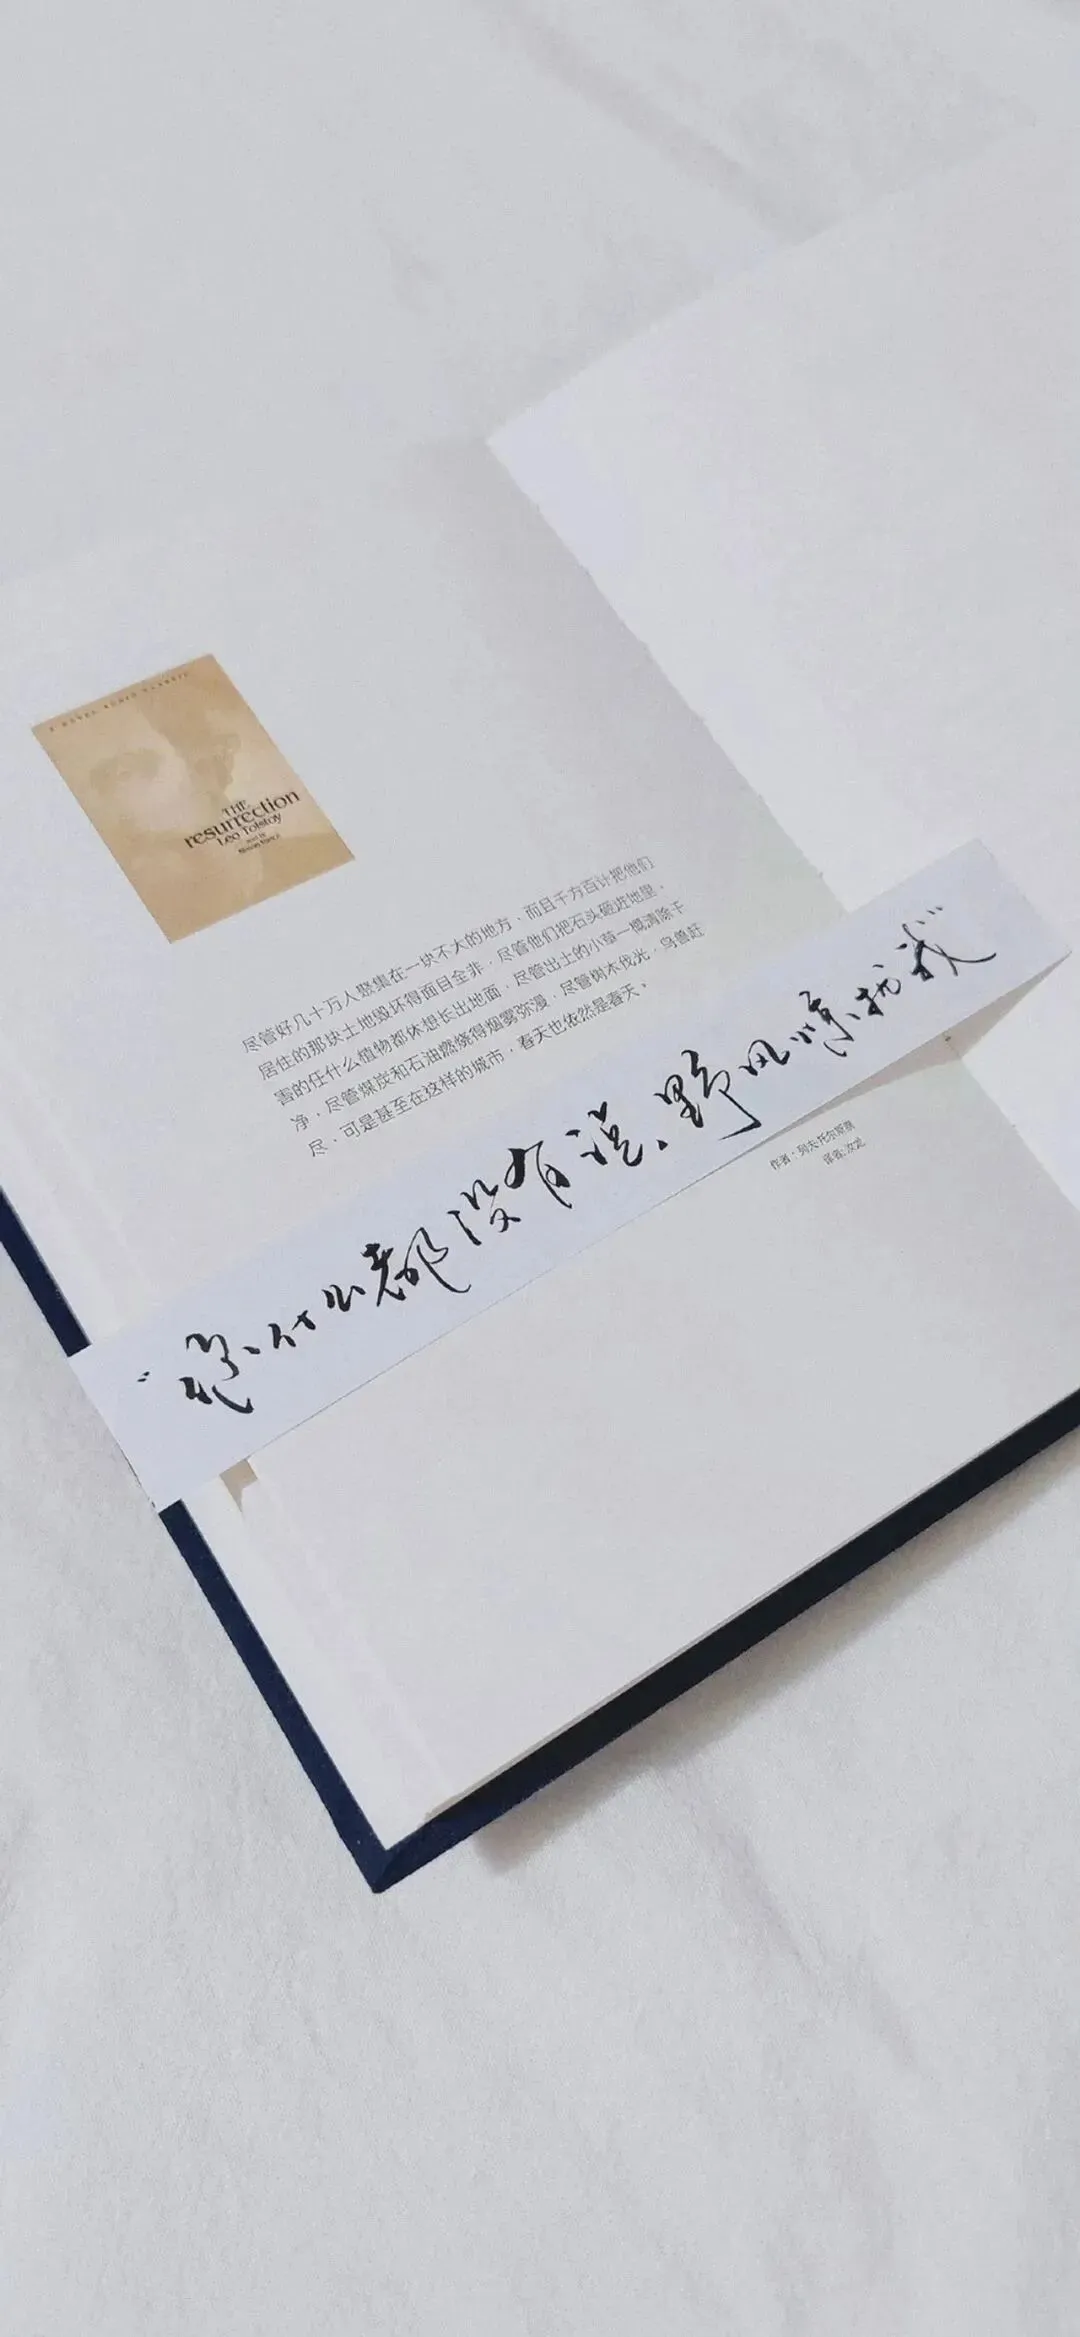 A NOVEL AUDIO CLASSIC
THE
resurrection
Leo Tolstoy
read by
尽管好几十万人聚集在一块不大的地方，而且千方百计把他们
居住的那块土地毁坏得面目全非，尽管他们把石头砸进地里，
害的任什么植物都休想长出地面，尽管出土的小草一概清除干
净，尽管煤炭和石油燃烧得烟雾弥漫，尽管树木伐光，鸟兽赶
尽，可是甚至在这样的城市，春天也依然是春天。
作者：列夫·托尔斯泰
译者：汝龙
“您什么都没有说、野风惊扰我”